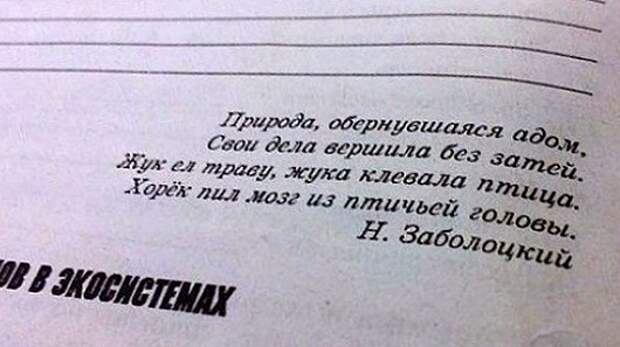 Природа, обернувшаяся адом,
Свои дела вершила без затей.
Жук ел траву, жука клевала птица.
Хорёк пил мозг из птичьей головы.
Н. Заболоцкий
В ЭКОСИСТЕМАХ